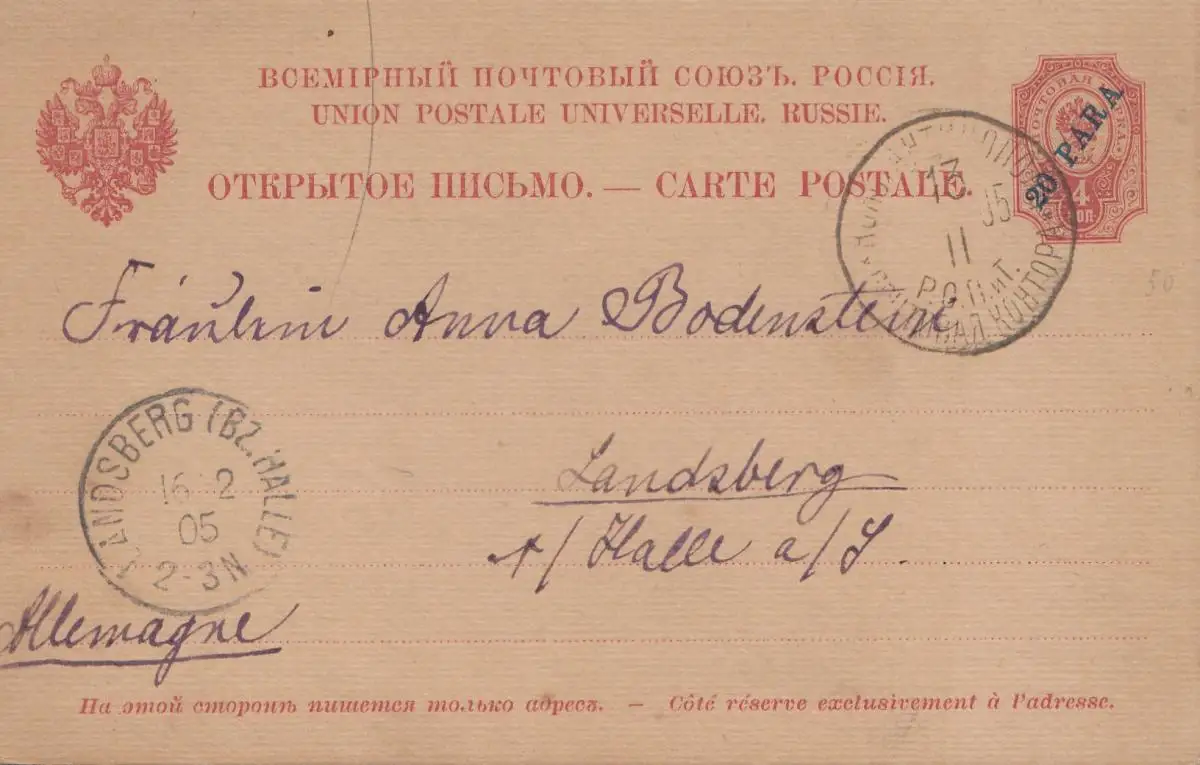 ВСЕМІРНЫЙ ПОЧТОВЫЙ СОЮЗЪ. РОССІЯ.
UNION POSTALE UNIVERSELLE. RUSSIE.
ОТКРЫТОЕ ПИСЬМО. — CARTE POSTALE.
ПОЧТОВАЯ МАРКА
20 PARA
4
КОП.
13
05
II
Р.О.П.иТ.
КОНТОРА
50
Fräulein Anna Bodenstein
LANDSBERG (BZ. HALLE)
16 2
05
2-3N
Landsberg
/Halle a/S.
Allemagne
На этой сторонѣ пишется только адресъ. — Côté réserve exclusivement à l'adresse.